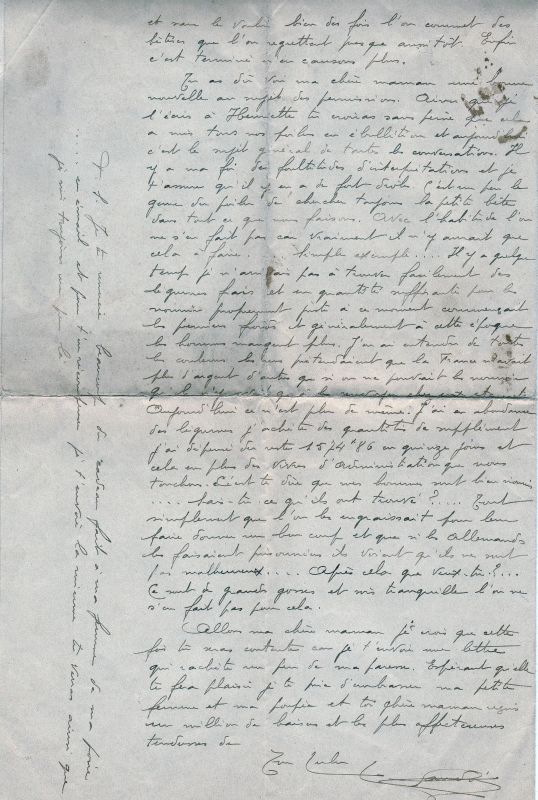 et sans le vouloir bien des fois l'on commet des
bêtises que l'on regrettait presque aussitôt. Enfin
c'est terminé n'en causons plus.
Tu as dû voir ma chère maman une bonne
nouvelle au sujet des permissions. Ainsi que je
l'écris à Henriette tu croiras sans peine que cela
a mis tous nos poilus en ébullition et aujourd'hui
c'est le sujet général de toutes les conversations. Il
y a ma foi des foultitudes d'interprétations et je
t'assure qu'il y en a de fort drôles. C'est un peu le
genre du poilu de chercher toujours la petite bête
dans tout ce que nous faisons. Avec l'habitude l'on
ne s'en fait pas car vraiment il n'y aurait que
cela à faire. .... Simple exemple .... Il y a quelque
temps je n'arrivais pas à trouver facilement des
légumes frais et en quantité suffisante pour les
nourrir proprement juste à ce moment commençait
les premiers froids et généralement à cette époque
les hommes mangent plus. J'en ai entendu de toutes
les couleurs les uns prétendaient que la France n'avait
plus d'argent d'autres que si on ne pouvait les nourrir
Aujourd'hui ce n'est plus de même. J'ai en abondance
des légumes j'achète des quantités de supplément
j'ai dépensé du reste 1574 86 en quinze jours et
cela en plus des vivres d'Administration que nous
touchons. C'est te dire que mes hommes sont bien nourris
.... sais-tu ce qu'ils ont trouvé? ..... Tout
simplement que l'on les engraissait pour leur
faire donner un bon coup et que si les Allemands
les faisaient prisonniers ils voient qu'ils ne sont
pas malheureux .... Après cela que veux-tu? ...
Ce sont de grands gosses et sois tranquille l'on ne
s'en fait pas pour cela.
Allons ma chère maman je crois que cette
fois tu seras contente car je t'envoie une lettre
qui rachète un peu de ma paresse. Espérant qu'elle
te fera plaisir je te prie d'embrasser ma petite
femme et ma poupée et toi chère maman reçois
un million de baisers et les plus affectueuses
tendresses de
Ton
P. S. Je te remercie beaucoup du cadeau fait à ma femme de ma part
et pour t'en récompenser je t'envoie la mienne tu verras ainsi que
je suis toujours un peu là